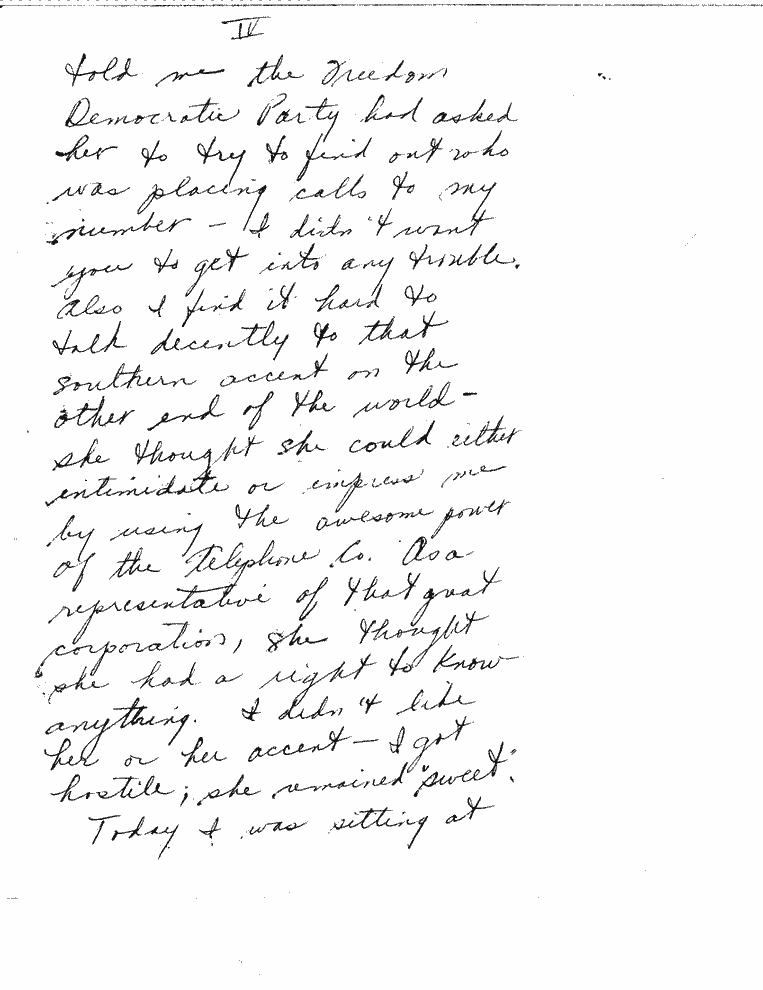 IV
told me the Freedom
Democratic Party had asked
her to try to find out who
was placing calls to my
number - I didn't want
you to get into any trouble.
Also I find it hard to
talk decently to that
southern accent on the
other end of the world -
she thought she could either
intimidate or impress me
by using the awesome power
of the Telephone Co. As a
representative of that great
corporation, she thought
she had a right to know
anything. I didn't like
her or her accent - I got
hostile; she remained "sweet".
Today I was sitting at